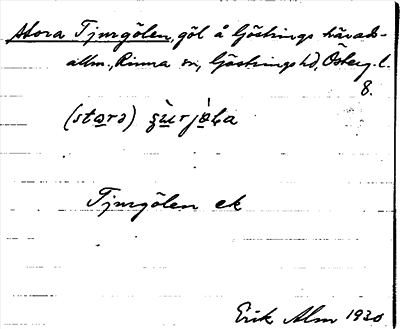 Stora Tjurgölen, göl å Göstrings härads-
allm., Rinna sn, Göstrings hd, Östergl.
8.
(stɷrə) ʂùrjòLa
Tjurgölen ek
Erik Alm 1930